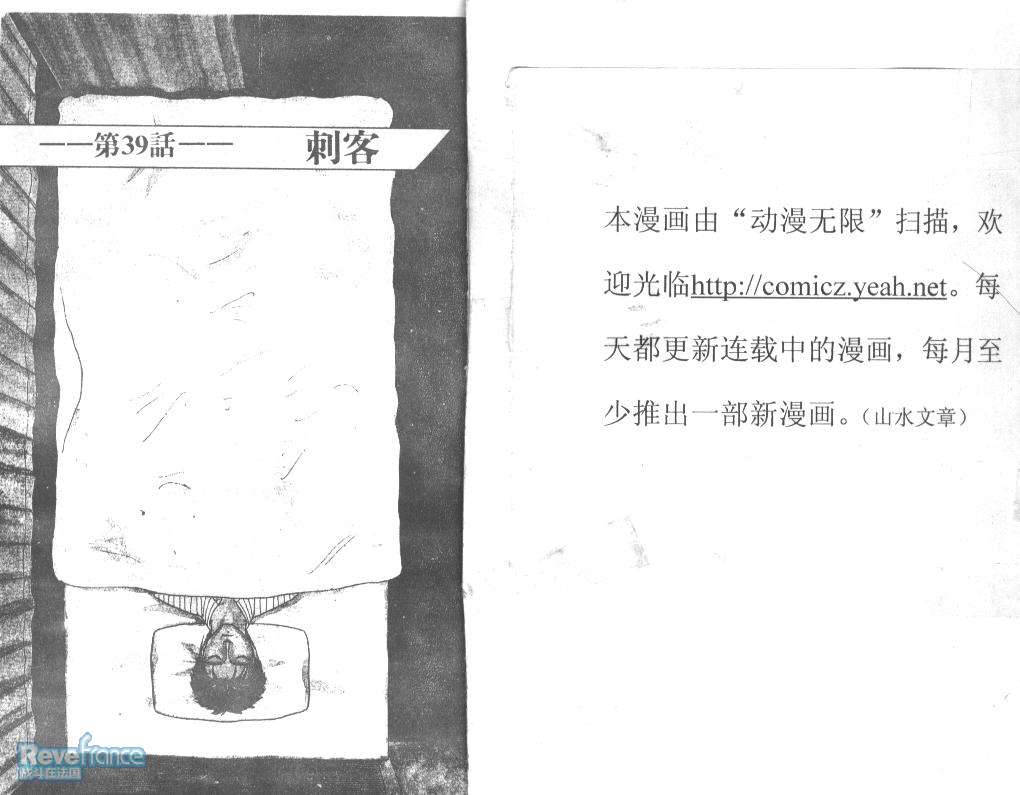 ——第39話—— 刺客
本漫画由“动漫无限”扫描，欢
迎光临http://comicz.yeah.net。每
天都更新连载中的漫画，每月至
少推出一部新漫画。（山水文章）
Revefrance
战斗在法国